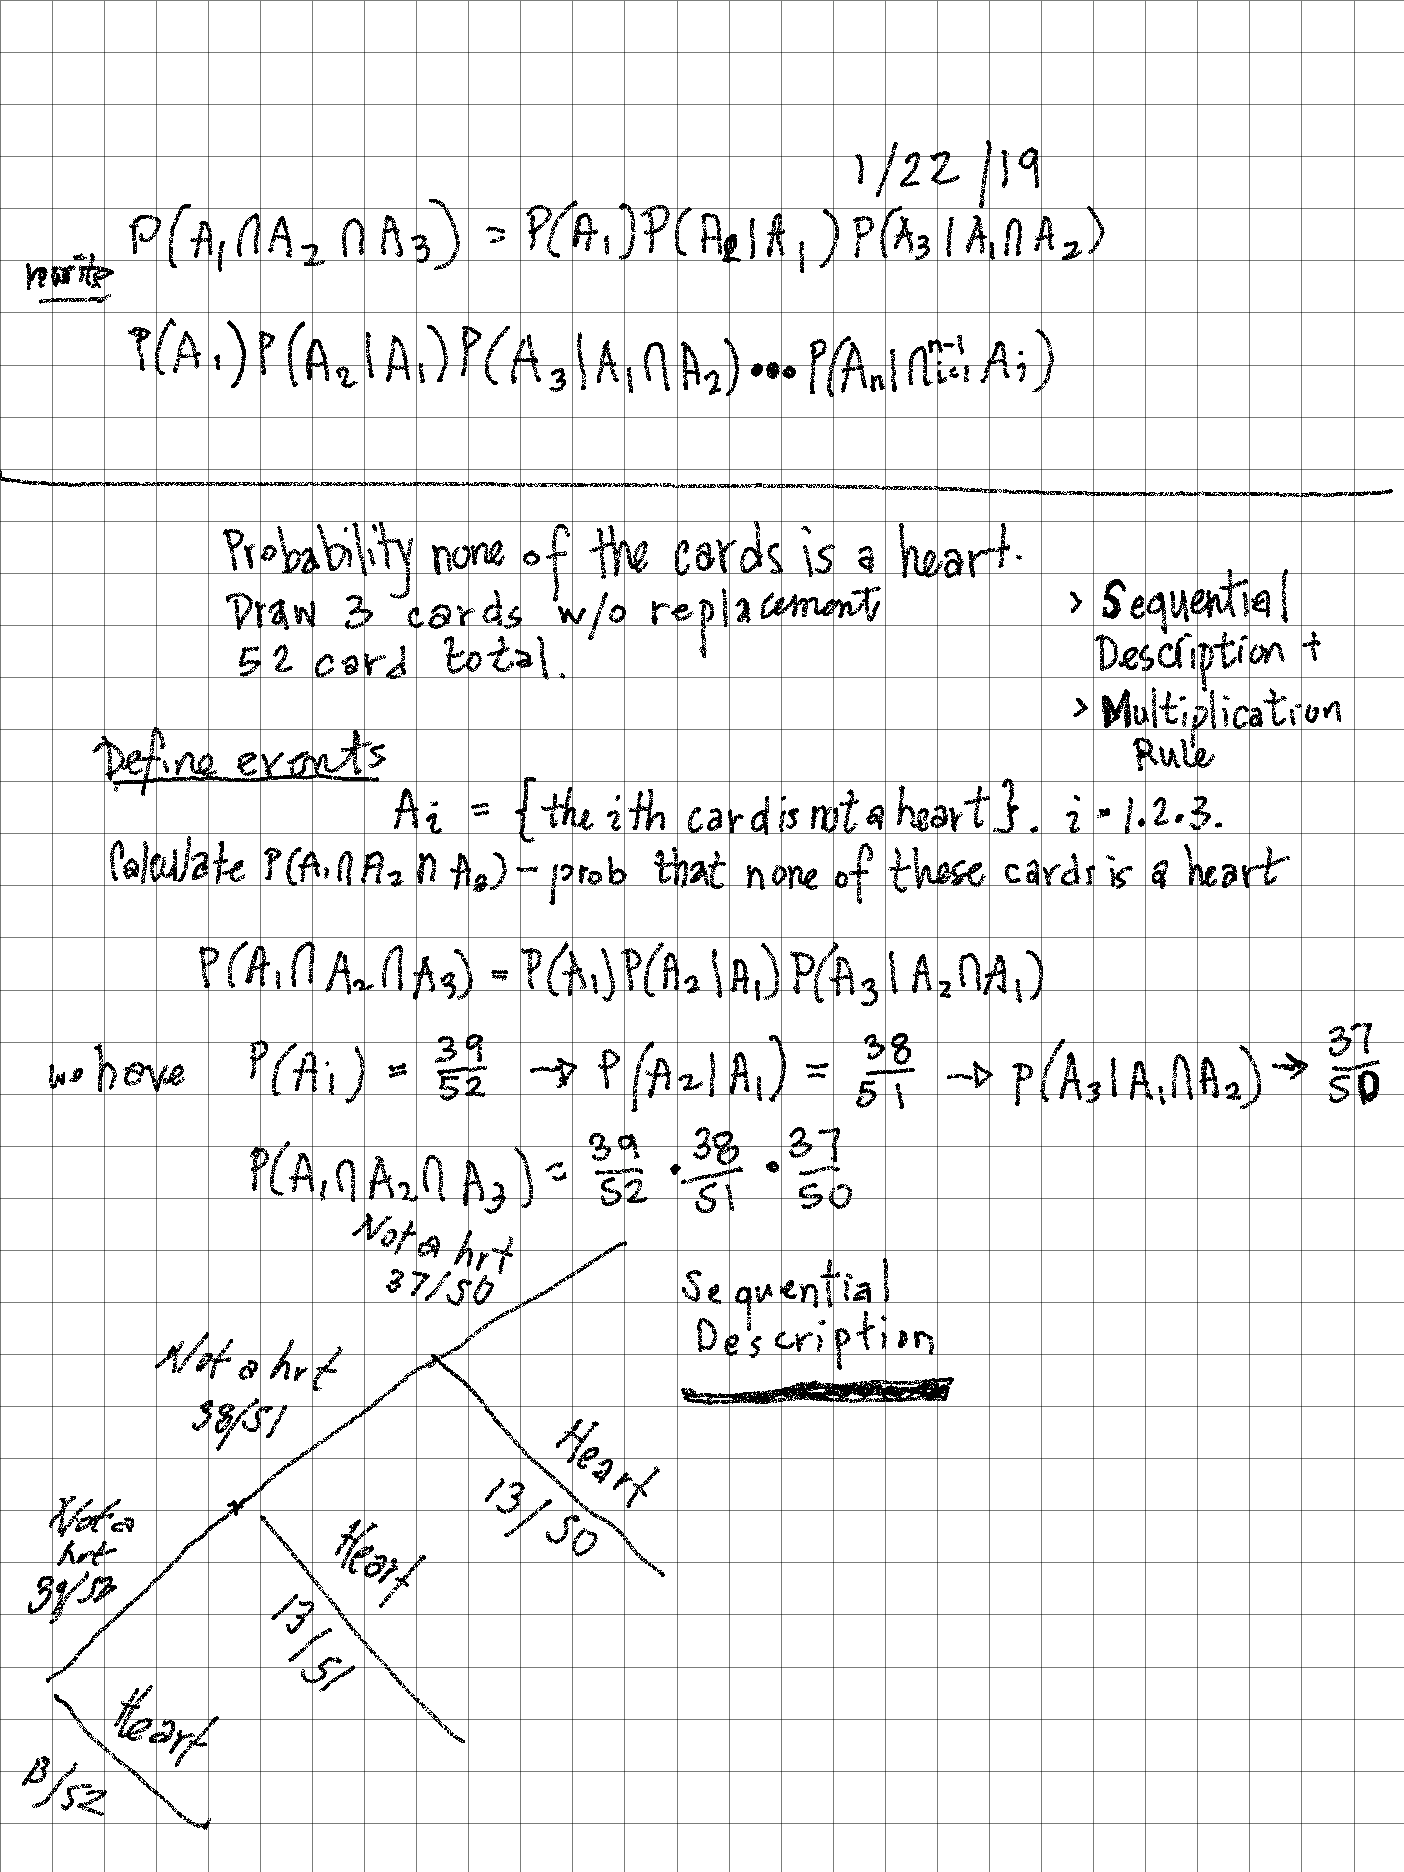 1/22/19
P(A₁∩A₂∩A₃) = P(A₁)P(A₂|A₁)P(A₃|A₁∩A₂)
rewrite
P(A₁)P(A₂|A₁)P(A₃|A₁∩A₂)•••P(Aₙ|∩ⁿ⁻¹ᵢ₌₁Aᵢ)
Probability none of the cards is a heart.
Draw 3 cards w/o replacement
52 card total.
> Sequential
Description +
> Multiplication
Rule
Define events
Aᵢ = {the ith card is not a heart}. i = 1.2.3.
Calculate P(A₁∩A₂∩A₃) - prob that none of these cards is a heart
P(A₁∩A₂∩A₃) = P(A₁)P(A₂|A₁)P(A₃|A₂∩A₁)
we have P(Aᵢ) = 39/52 → P(A₂|A₁) = 38/51 → P(A₃|A₁∩A₂) → 37/50
P(A₁∩A₂∩A₃) = 39/52 • 38/51 • 37/50
Not a hrt
37/50
Sequential
Description
Not a hrt
38/51
Heart
13/50
Not a
hrt
39/52
Heart
13/51
Heart
13/52